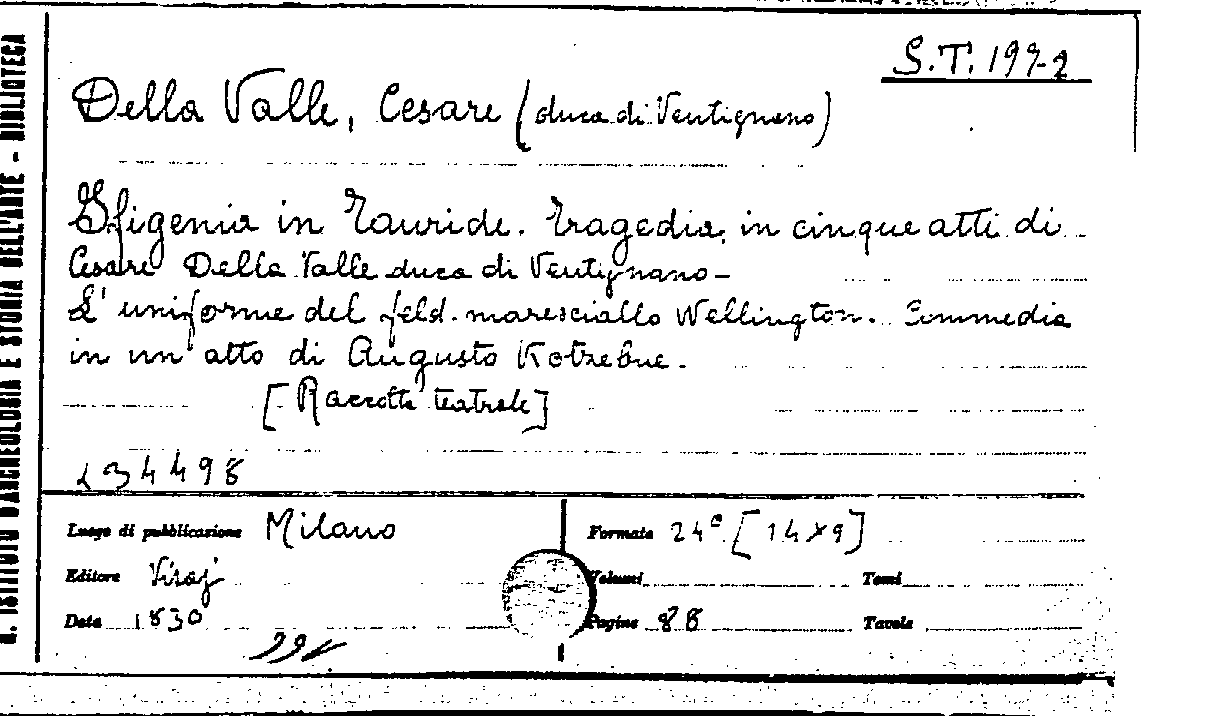 S.T. 199-2
Della Valle, Cesare (duca di Ventignano)
Ifigenia in Tauride. Tragedia in cinque atti di
Cesare Della Valle duca di Ventignano -
L'uniforme del feld. maresciallo Wellington. Commedia
in un atto di Augusto Kotzebue.
[Raccolta teatrale]
234498
Luogo di pubblicazione Milano
Formato 24° [14x9]
Editore Visaj
Volumi
Tomi
Data 1830
Pagine 88
Tavole
R. ISTITUTO D'ARCHEOLOGIA E STORIA DELL'ARTE - BIBLIOTECA